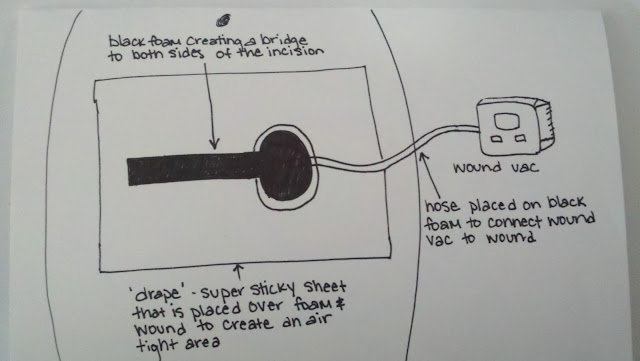 black foam creating a bridge
to both sides of the incision
wound vac
hose placed on black
foam to connect wound
vac to wound
'drape' - super sticky sheet
that is placed over foam &
wound to create an air
tight area